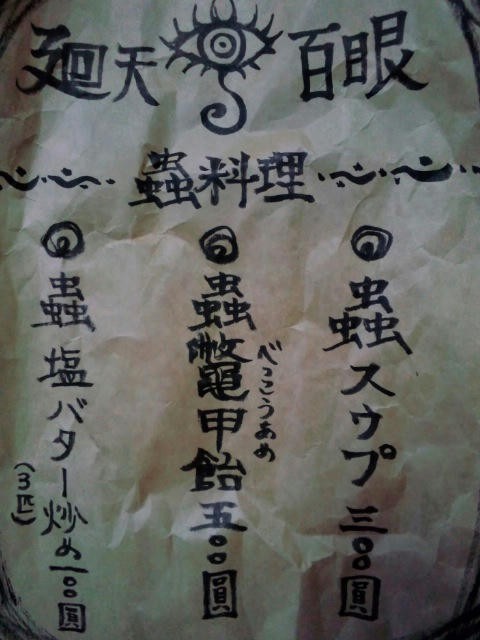 廻天百眼
蟲料理
蟲スウプ三〇〇圓
蟲鼈甲飴五〇〇圓
べっこうあめ
蟲塩バター炒め一〇〇圓
(3匹)